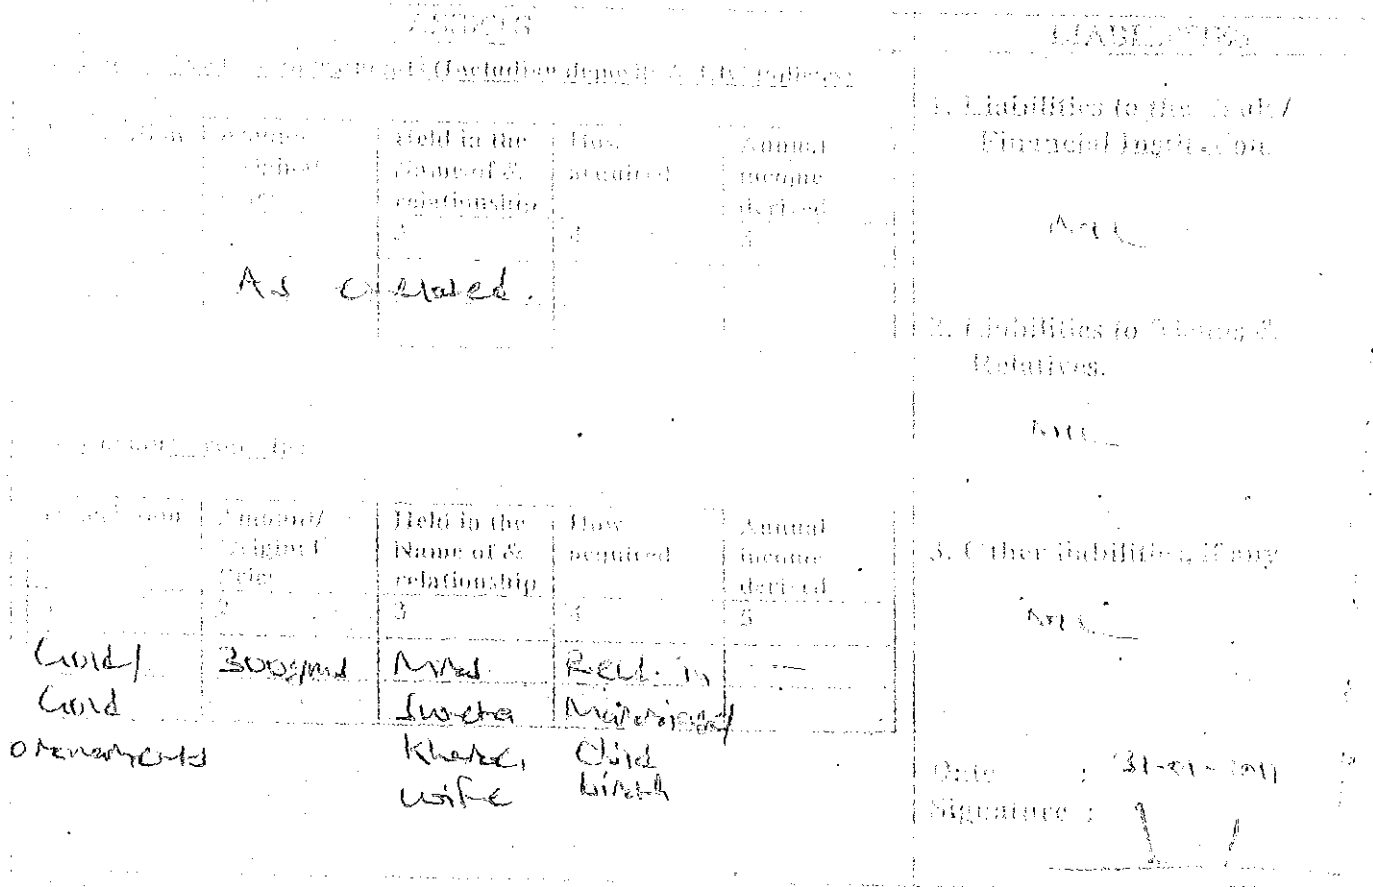 ASSETS
(Including deposits &
Held in the
Name of &
relationship
3
How
acquired
4
Annual
income
derived
5
As enclosed.
Amount/
Original
Price
2
Held in the
Name of &
relationship
3
How
acquired
4
Annual
income
derived
5
Gold/
Gold
ornaments
300gms
Mrs
Sweta
Khare,
wife
Recd. in
Marriage/
Child
birth
—
LIABILITIES
1. Liabilities to the
Financial Institution
Nil
2. Liabilities to
Relatives.
Nil
3. Other liabilities, if any
Nil
Date : 31-01-
Signature :